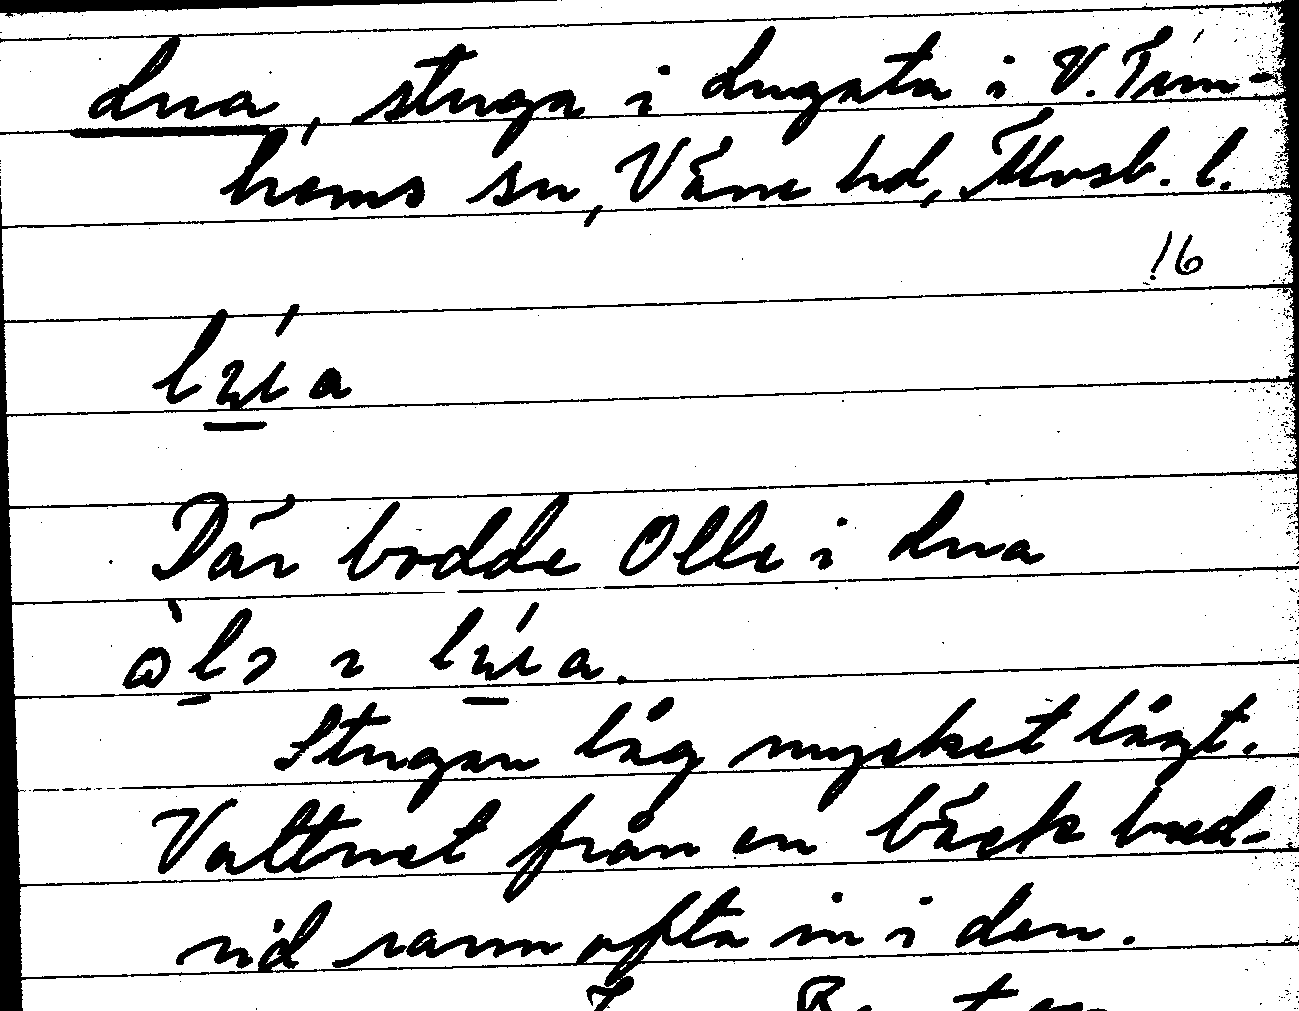 Lua, stuga i Lugata i V. Tun-
hems sn, Väne hd, Älvsb. l.
16
Där bodde Olle i Lua
Stugan låg mycket lågt.
Vattnet från en bäck bred-
vid rann ofta in i den.